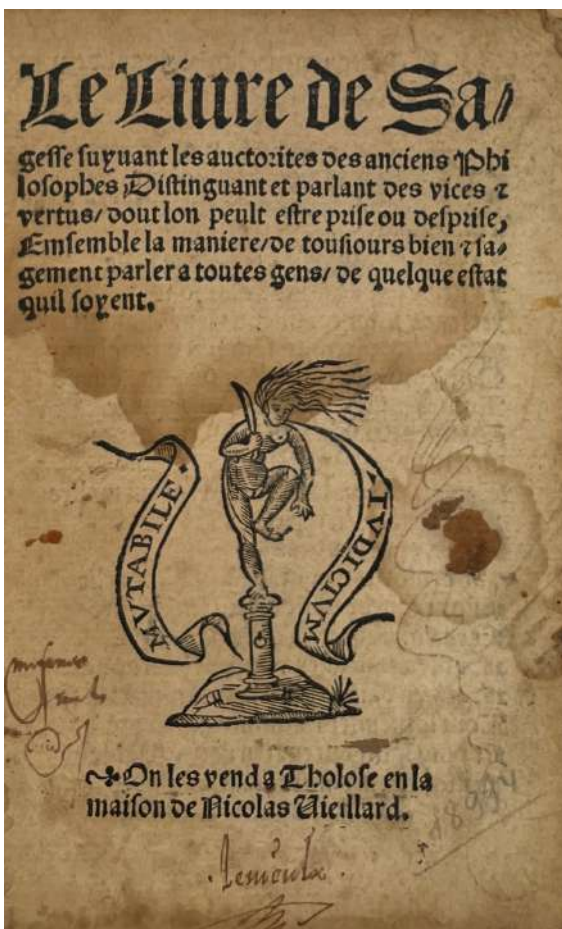 Le Liure de Sa⸗
gesse suyuant les auctorites des anciens Phi
losophes Distinguant et parlant des vices ⁊
vertus/ dout lon peult estre prise ou desprise,
Einsemble la maniere/ de tousiours bien ⁊ sa⸗
gement parler a toutes gens/ de quelque estat
quil soyent.
MVTABILE.
.IVDICIVM
On les vend a Tholose en la
maison de Nicolas Uieillard.